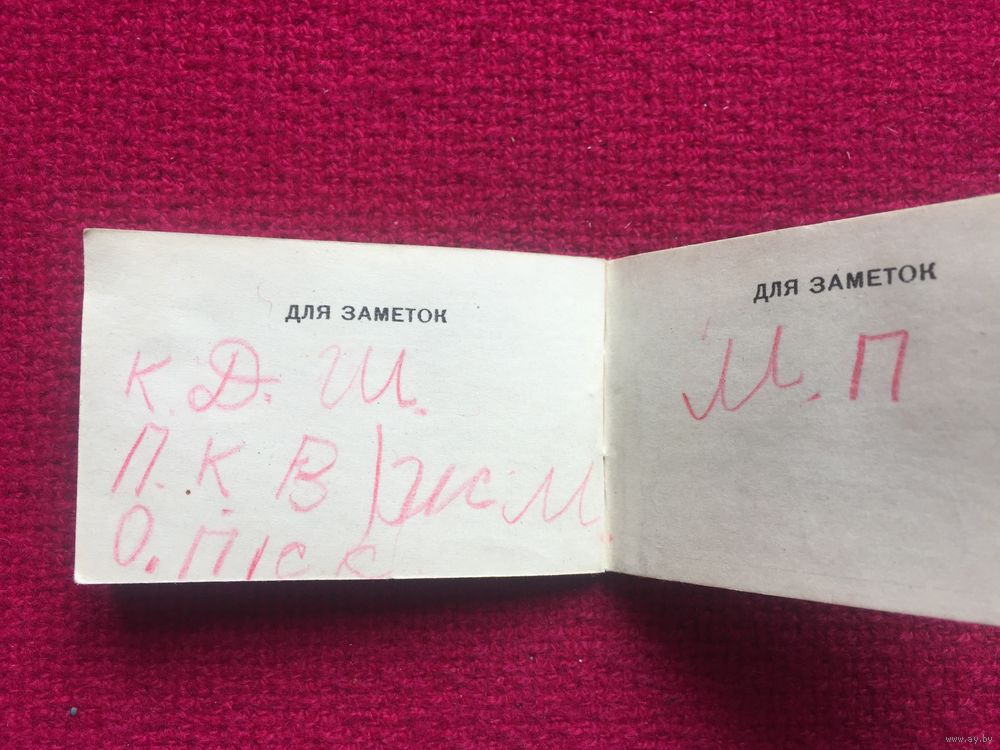 ДЛЯ ЗАМЕТОК
К. Д. Ш.
П. К. В
О. П
ДЛЯ ЗАМЕТОК
М. П
www.ay.by